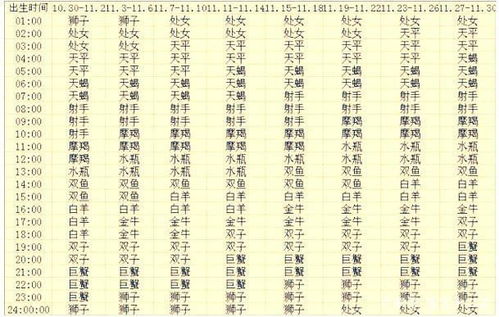 出生时间 10.30-11.2 11.3-11.6 11.7-11.10 11.11-11.14 11.15-11.18 11.19-11.22 11.23-11.26 11.27-11.30
01:00 狮子 狮子 处女 处女 处女 处女 处女 处女
02:00 处女 处女 处女 处女 处女 处女 天平 天平
03:00 处女 处女 天平 天平 天平 天平 天平 天平
04:00 天平 天平 天平 天平 天平 天平 天平 天蝎
05:00 天平 天平 天平 天平 天蝎 天蝎 天蝎 天蝎
06:00 天平 天蝎 天蝎 天蝎 天蝎 天蝎 天蝎 天蝎
07:00 天蝎 天蝎 天蝎 天蝎 射手 射手 射手 射手
08:00 射手 射手 射手 射手 射手 射手 射手 射手
09:00 射手 射手 射手 射手 射手 摩羯 摩羯 摩羯
10:00 射手 摩羯 摩羯 摩羯 摩羯 摩羯 摩羯 摩羯
11:00 摩羯 摩羯 摩羯 摩羯 水瓶 水瓶 水瓶 水瓶
12:00 摩羯 水瓶 水瓶 水瓶 水瓶 水瓶 水瓶 水瓶
13:00 水瓶 水瓶 水瓶 水瓶 双鱼 双鱼 双鱼 双鱼
14:00 双鱼 双鱼 双鱼 双鱼 双鱼 双鱼 白羊 白羊
15:00 双鱼 双鱼 白羊 白羊 白羊 白羊 白羊 白羊
16:00 白羊 白羊 白羊 白羊 金牛 金牛 金牛 金牛
17:00 白羊 金牛 金牛 金牛 金牛 金牛 金牛 双子
18:00 白羊 金牛 金牛 双子 双子 双子 双子 双子
19:00 双子 双子 双子 双子 双子 双子 双子 巨蟹
20:00 双子 双子 双子 巨蟹 巨蟹 巨蟹 巨蟹 巨蟹
21:00 巨蟹 巨蟹 巨蟹 巨蟹 巨蟹 巨蟹 巨蟹 巨蟹
22:00 巨蟹 巨蟹 巨蟹 巨蟹 狮子 狮子 狮子 狮子
23:00 巨蟹 狮子 狮子 狮子 狮子 狮子 狮子 狮子
24:00:00 狮子 狮子 狮子 狮子 狮子 处女 处女 处女